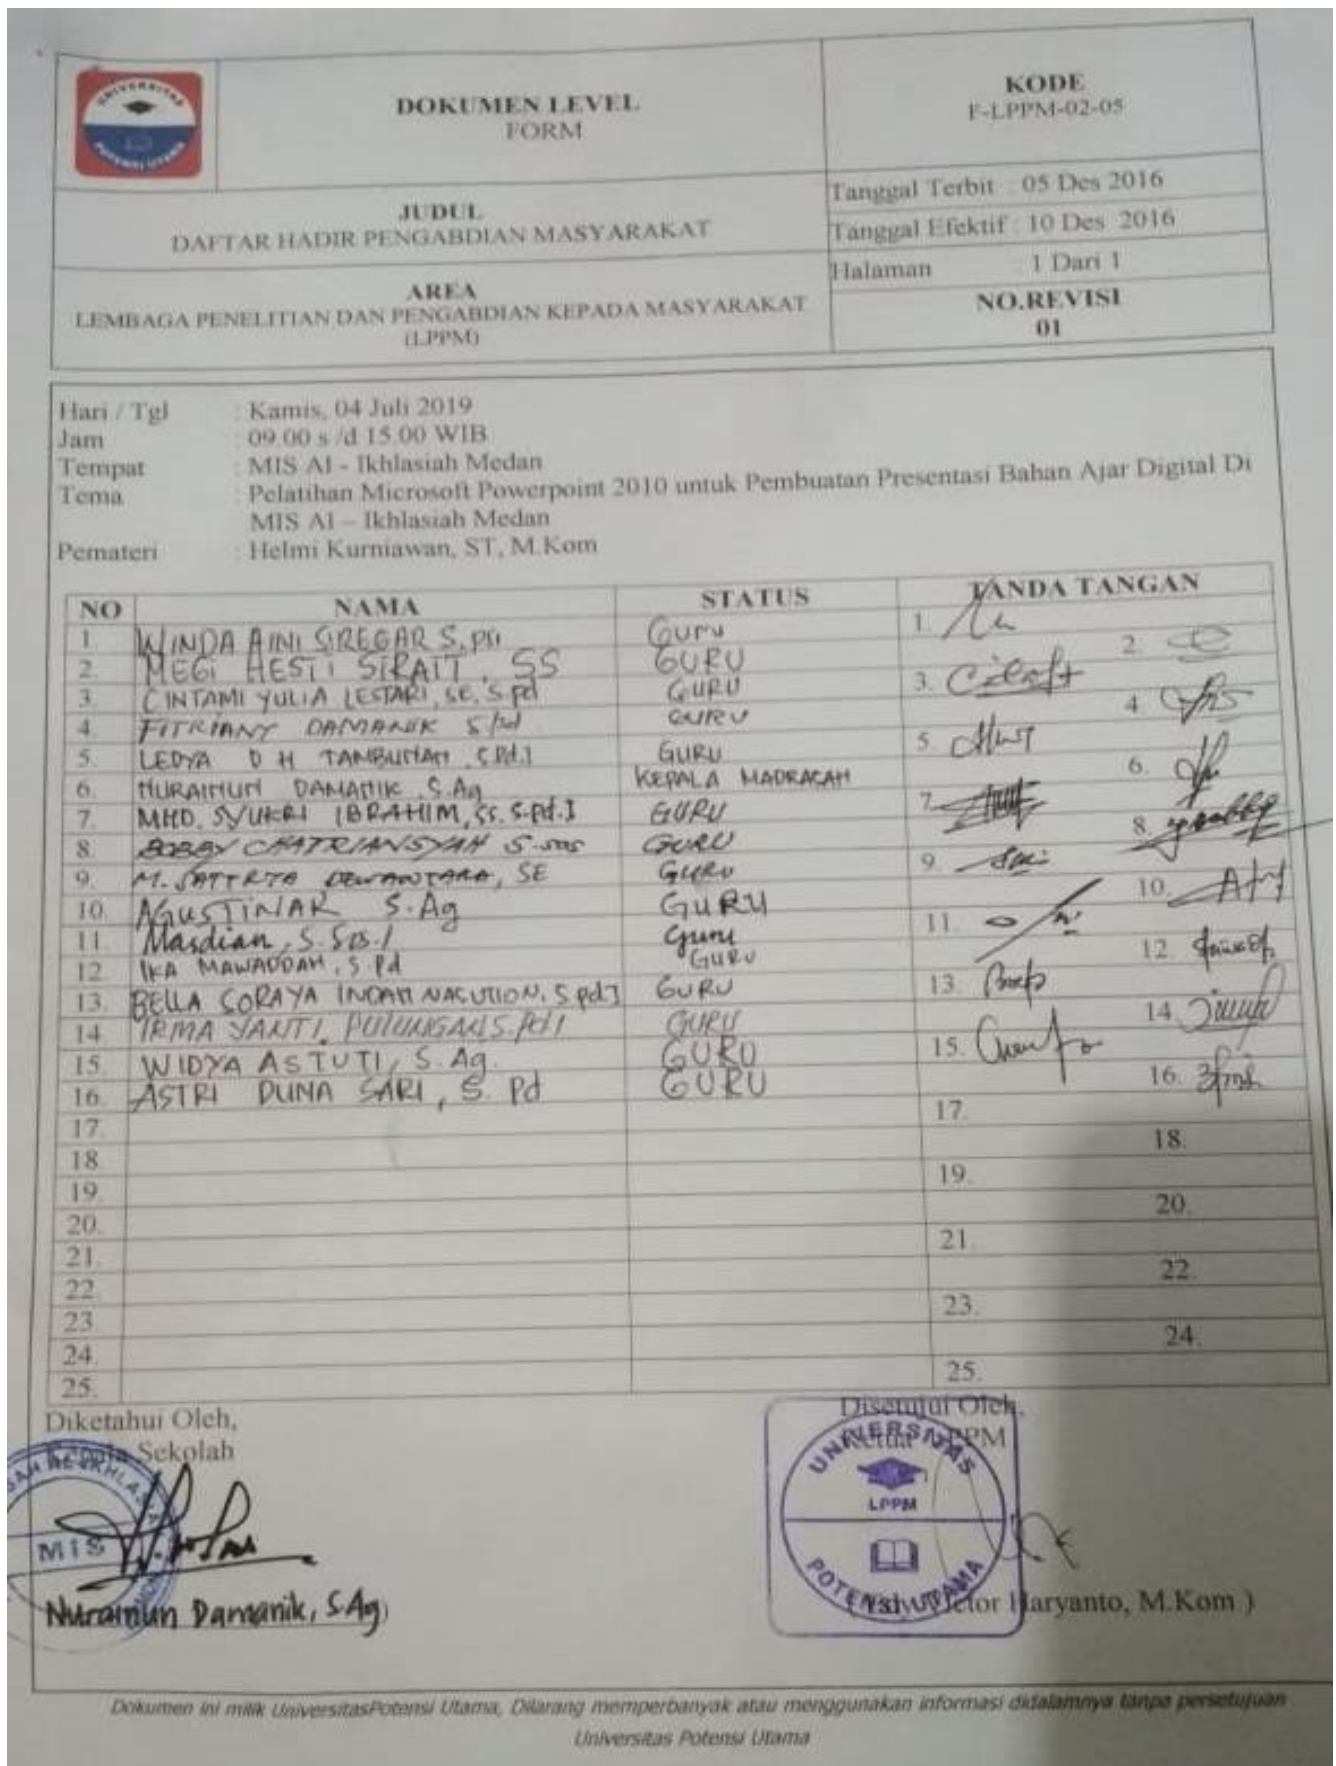 UNIVERSITAS
POTENSI UTAMA
DOKUMEN LEVEL
FORM
KODE
F-LPPM-02-05
JUDUL
DAFTAR HADIR PENGABDIAN MASYARAKAT
Tanggal Terbit : 05 Des 2016
Tanggal Efektif : 10 Des 2016
Halaman 1 Dari 1
AREA
LEMBAGA PENELITIAN DAN PENGABDIAN KEPADA MASYARAKAT
(LPPM)
NO.REVISI
01
Hari / Tgl : Kamis, 04 Juli 2019
Jam : 09.00 s /d 15.00 WIB
Tempat : MIS Al - Ikhlasiah Medan
Tema : Pelatihan Microsoft Powerpoint 2010 untuk Pembuatan Presentasi Bahan Ajar Digital Di
MIS Al – Ikhlasiah Medan
Pemateri : Helmi Kurniawan, ST, M.Kom
NO NAMA STATUS TANDA TANGAN
1. WINDA AINI SIREGAR S.psi Guru 1.
2. MEGI HESTI SIRAIT, SS GURU 2.
3. CINTAMI YULIA LESTARI, SE, S.pd GURU 3.
4. FITRIANY DAMANIK S.pd GURU 4.
5. LEDYA D H TAMBUNAN S.Pd.I GURU 5.
6. NURAINUN DAMANIK S.Ag KEPALA MADRASAH 6.
7. MHD. SYUKRI IBRAHIM, SS. S.pd.I GURU 7.
8. BOBBY CHATRIANSYAH S.sos GURU 8.
9. M. DEWANTARA, SE GURU 9.
10. AGUSTINAR S.Ag GURU 10.
11. Masdian, S.Sos.I Guru 11.
12. IKA MAWADDAH, S.Pd GURU 12.
13. BELLA SORAYA INDAH NASUTION, S.pd.I GURU 13.
14. IRMA YANTI PULUNGAN S.Pd.I GURU 14.
15. WIDYA ASTUTI, S.Ag. GURU 15.
16. ASTRI DUNA SARI, S.Pd GURU 16.
17. 17.
18. 18.
19. 19.
20. 20.
21. 21.
22. 22.
23. 23.
24. 24.
25. 25.
Diketahui Oleh, Disetujui Oleh,
Kepala Sekolah Ketua LPPM
MIS
UNIVERSITAS
LPPM
POTENSI UTAMA
Nurainun Damanik, S.Ag) Haryanto, M.Kom )
Dokumen ini milik UniversitasPotensi Utama, Dilarang memperbanyak atau menggunakan informasi didalamnya tanpa persetujuan
Universitas Potensi Utama